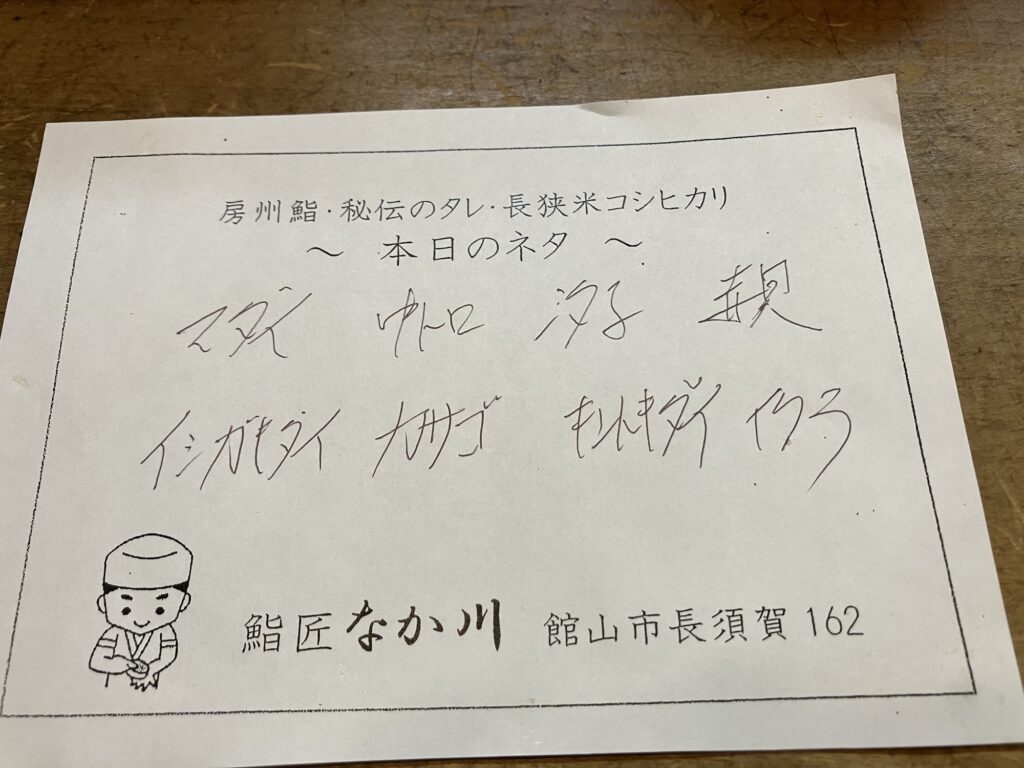 房州鮨・秘伝のタレ・長狭米コシヒカリ
～ 本日のネタ ～
マダイ 中トロ 汐子 赤貝
イシガキダイ カサゴ キントキダイ イクラ
鮨匠 なか川 館山市長須賀162